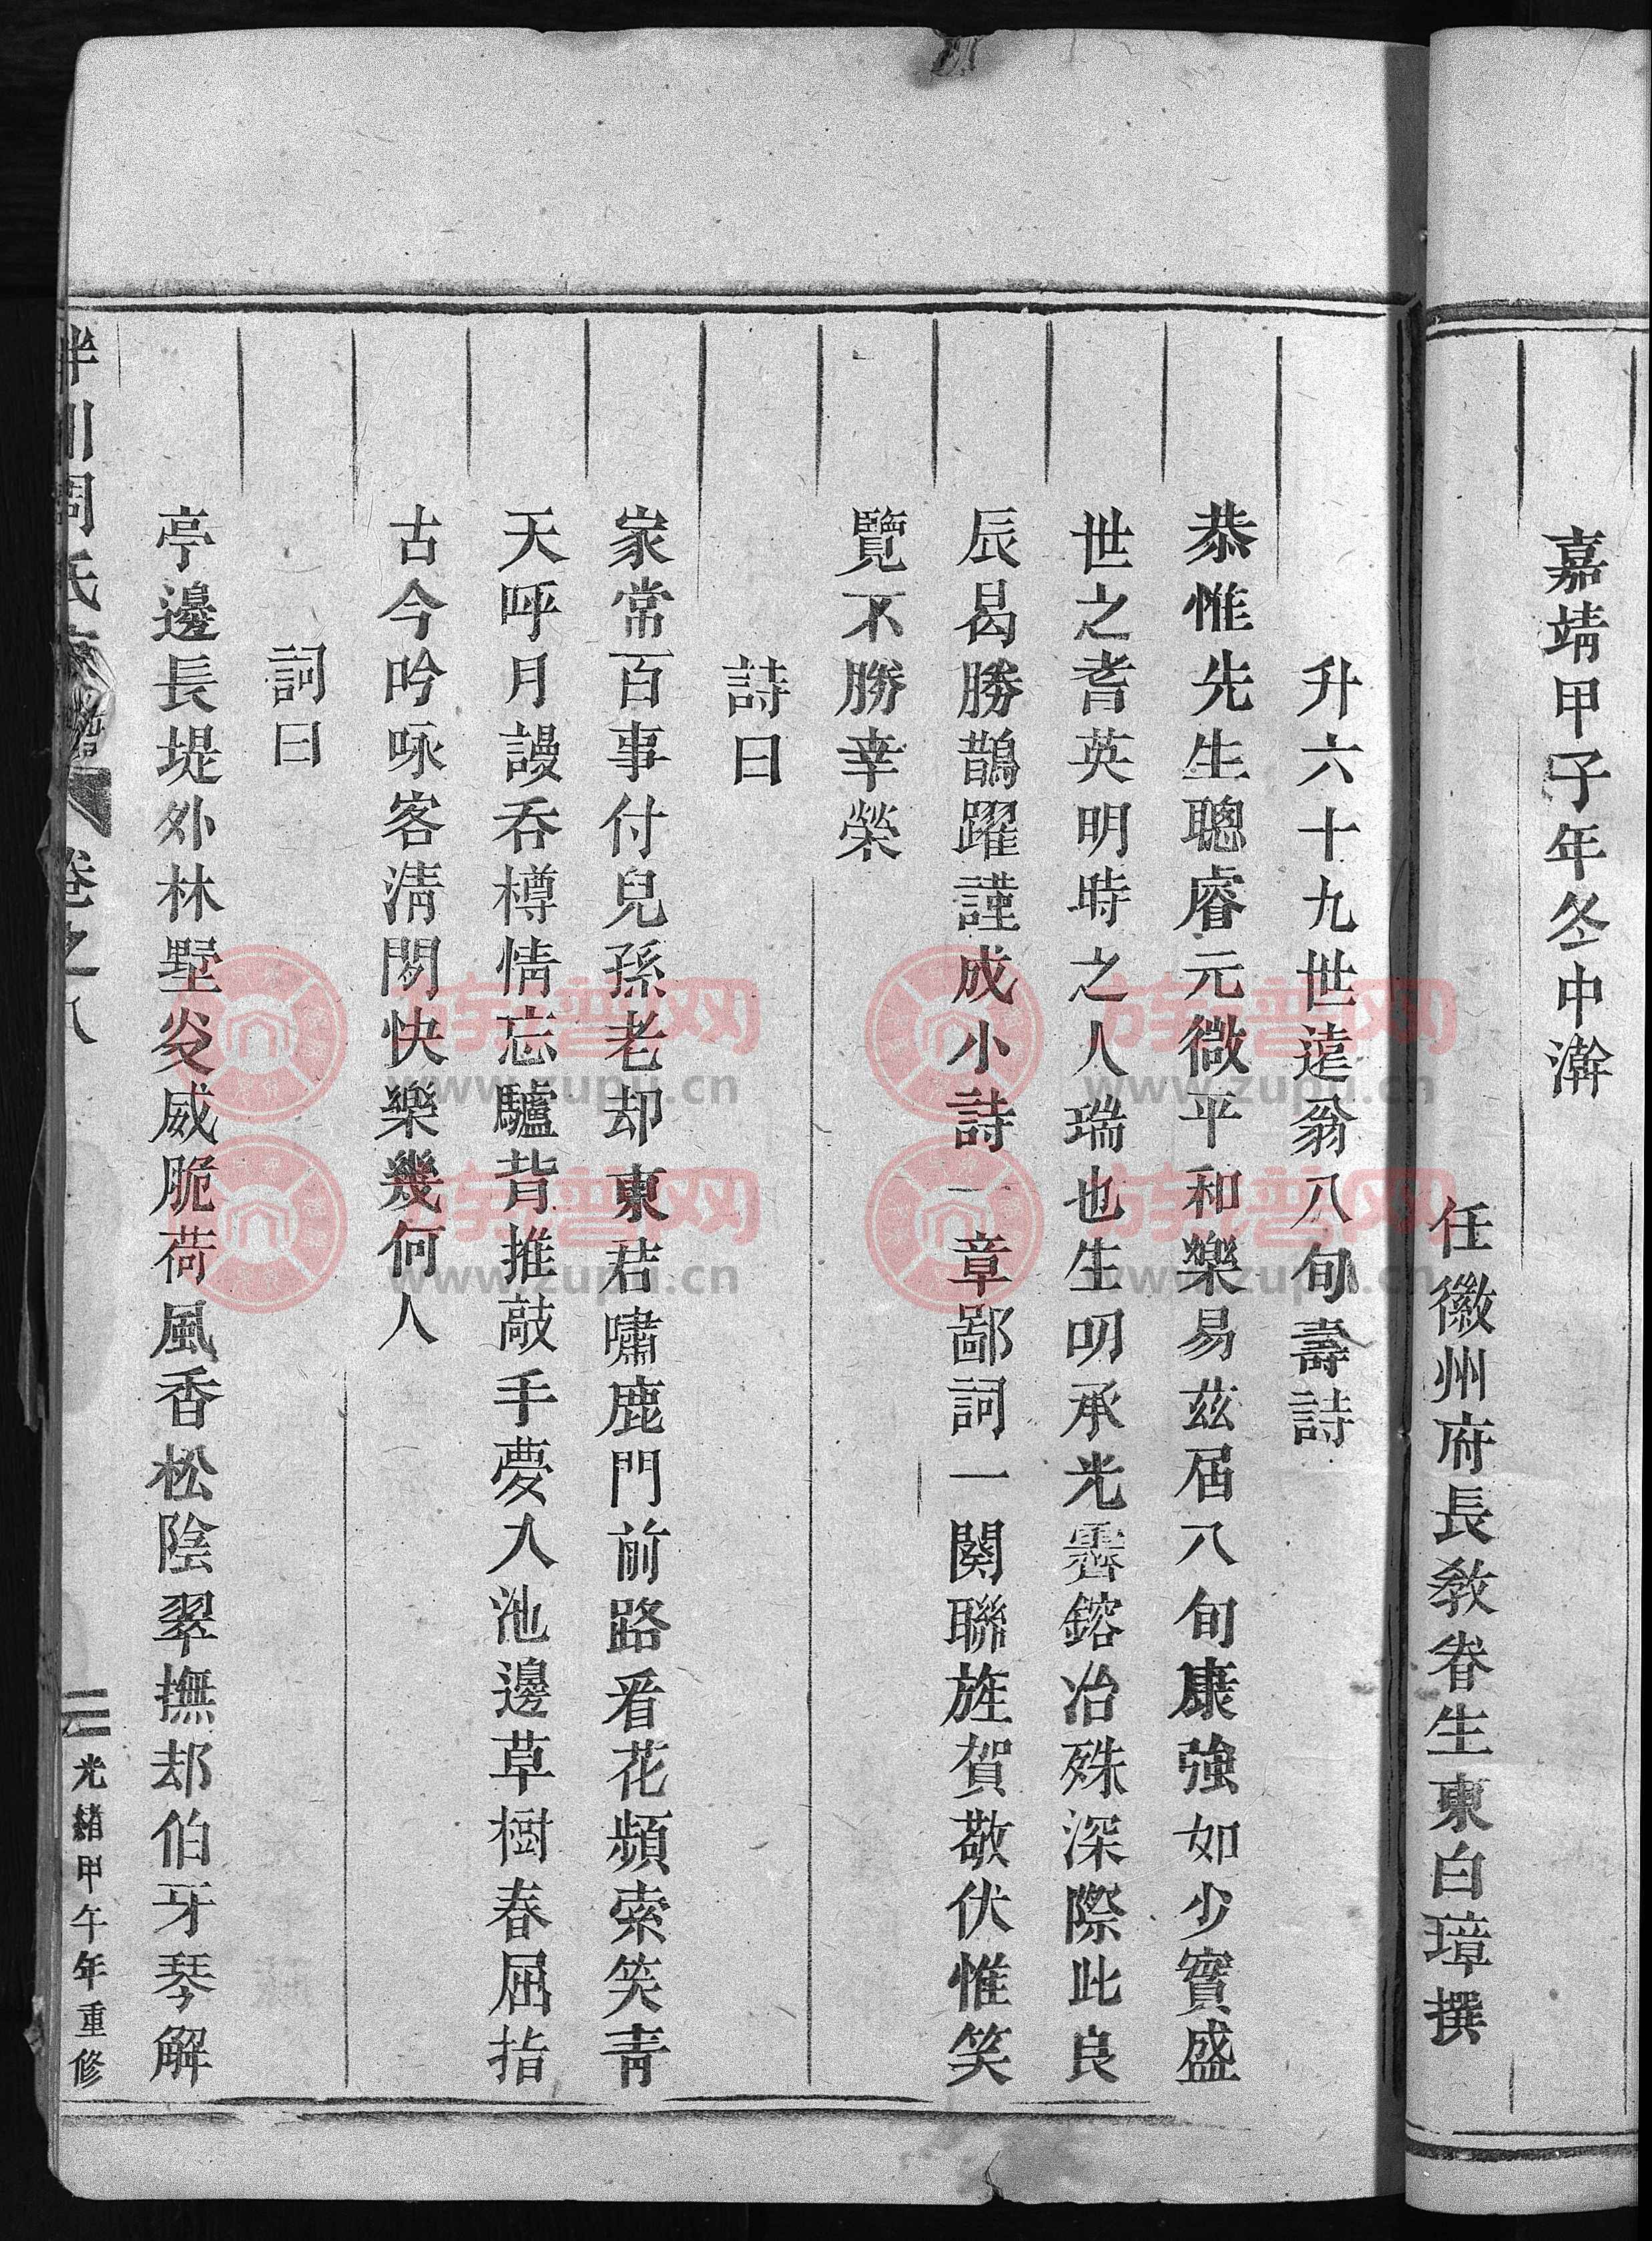 嘉靖甲子年冬中澣
任徽州府長教眷生東白璋撰
升六十九世遠翁八旬壽詩
恭惟先生聰睿元微平和樂易茲届八旬康強如少實盛
世之耆英明時之人瑞也生叨承光霽鎔冶殊深際此良
辰曷勝鵲躍謹成小詩一章鄙詞一闋聯旌賀敬伏惟笑
覽不勝幸榮
詩曰
家常百事付兒孫老却東君嘯鹿門前路看花頻索笑青
天呼月謾吞樽情忘驢背推敲手夢入池邊草樹春屈指
古今吟咏客清閒快樂幾何人
詞曰
亭邊長堤外林墅炎威脆荷風香松陰翠撫却伯牙琴解
川周氏 卷之八
二 光緒甲午年重修
族普网
www.zupu.cn
族普网
www.zupu.cn
族普网
www.zupu.cn
族普网
www.zupu.cn